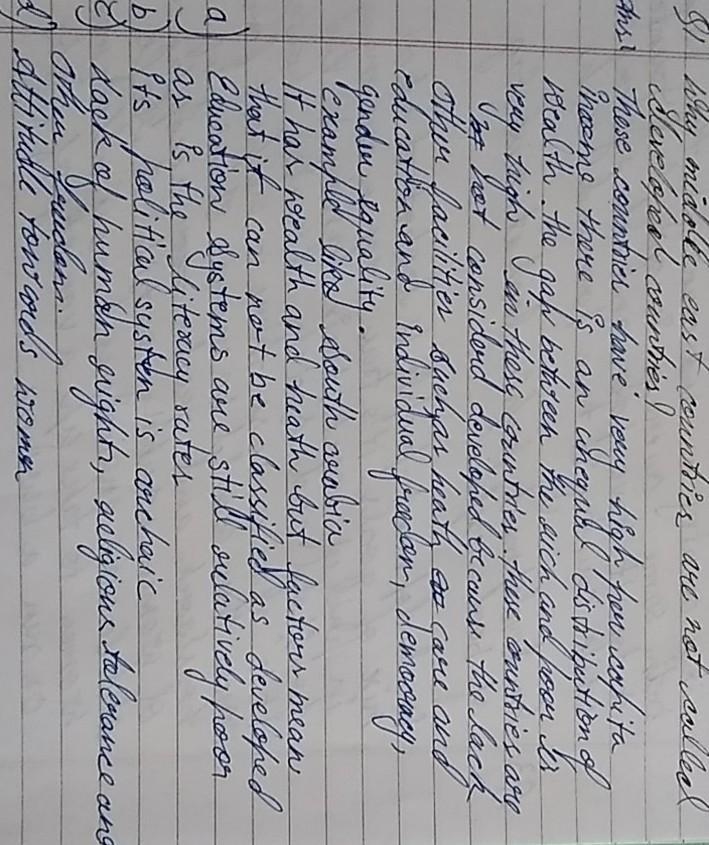 Q1 Why middle east countries are not called
developed countries?
Ans: These countries have very high per capita
income there is an unequal distribution of
wealth. the gap between the rich and poor is
very high in these countries. these countries are
not considerd developed becaus the lack
other facilities such as heath care and
education and individual freedom, democracy,
gender equality.
example like South arabia
It has wealth and heath but factors mean
that it can not be classified as developed
a) Education systems are still relatively poor
as is the literacy rates
b) its political system is archaic
c) Lack of human rights, religious tolerance and
other freedom.
d) Attitude towards women